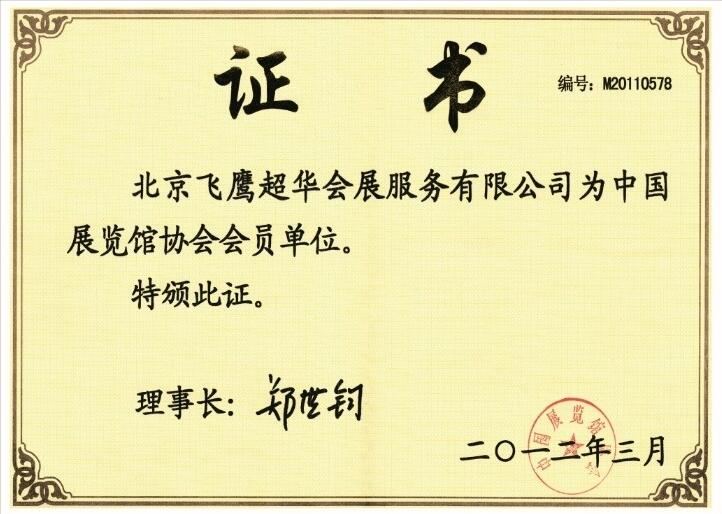 证书
编号：M20110578
北京飞鹰超华会展服务有限公司为中国
展览馆协会会员单位。
特颁此证。
理事长：郑世钧
中国展览馆协会
二〇一二年三月